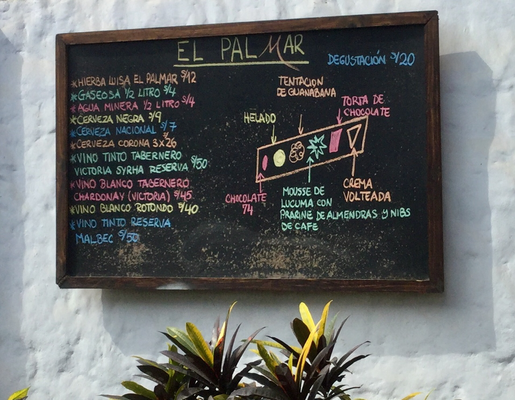 EL PALMAR
DEGUSTACIÓN S/20
*HIERBA LUISA EL PALMAR S/12
*GASEOSA 1/2 LITRO S/4
*AGUA MINERA 1/2 LITRO S/4
*CERVEZA NEGRA S/9
*CERVEZA NACIONAL S/7
*CERVEZA CORONA 3x26
*VINO TINTO TABERNERO
VICTORIA SYRHA RESERVA S/50
*VINO BLANCO TABERNERO
CHARDONAY (VICTORIA) S/45
*VINO BLANCO ROTONDO S/40
*VINO TINTO RESERVA
MALBEC S/50
TENTACION
DE GUANABANA
HELADO
TORTA DE
CHOCOLATE
CHOCOLATE
74
MOUSSE DE
LUCUMA CON
PRARINE DE ALMENDRAS Y NIBS
DE CAFE
CREMA
VOLTEADA